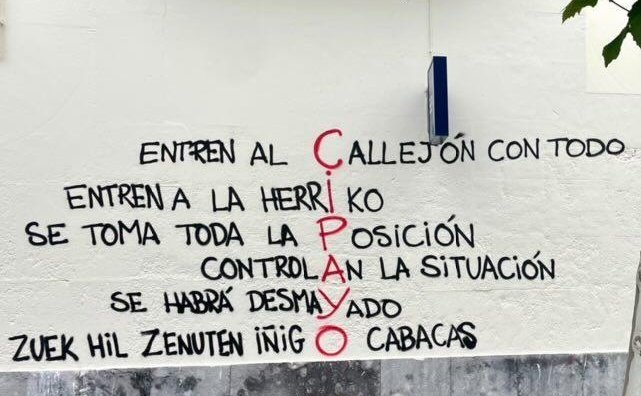 ENTREN AL CALLEJÓN CON TODO
ENTREN A LA HERRIKO
SE TOMA TODA LA POSICIÓN
CONTROLAN LA SITUACIÓN
SE HABRÁ DESMAYADO
ZUEK HIL ZENUTEN IÑIGO CABACAS